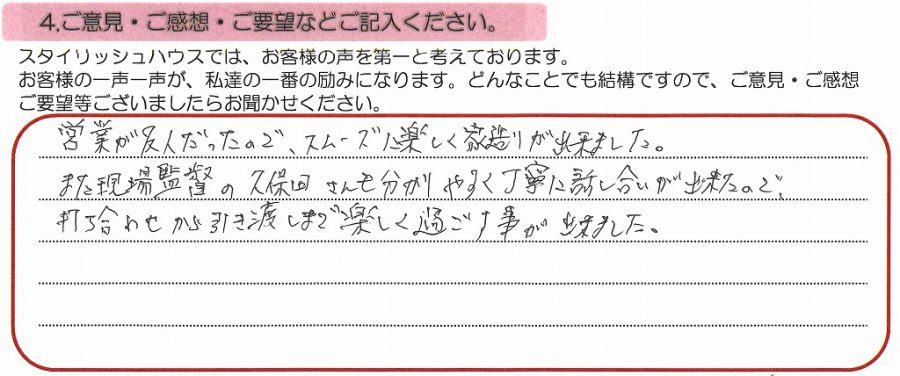 4.ご意見・ご感想・ご要望などご記入ください。
スタイリッシュハウスでは、お客様の声を第一と考えております。
お客様の一声一声が、私達の一番の励みになります。どんなことでも結構ですので、ご意見・ご感想
ご要望等ございましたらお聞かせください。
営業が友人だったので、スムーズに楽しく家造りが出来ました。
また現場監督の久保田さんも分かりやすく丁寧に話し合いが出来たので、
打ち合わせから引き渡しまで楽しく過ごす事が出来ました。